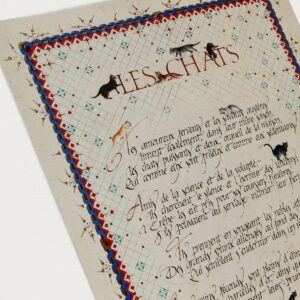 LES CHATS
Les amoureux fervents et les savants austères
Aiment également dans leur mûre saison,
Les chats puissants et doux, orgueil de la maison,
Qui comme eux sont frileux et comme eux sédentaires.
Amis de la science et de la volupté,
Ils cherchent le silence et l'horreur des ténèbres
L'Érèbe les eût pris pour ses coursiers funèbres
S'ils pouvaient au servage incliner leur
Ils prennent en songeant les nobles
Des grands sphinx allongés au fond des
Qui semblent s'endormir dans un
Leurs reins féconds sont pleins d'